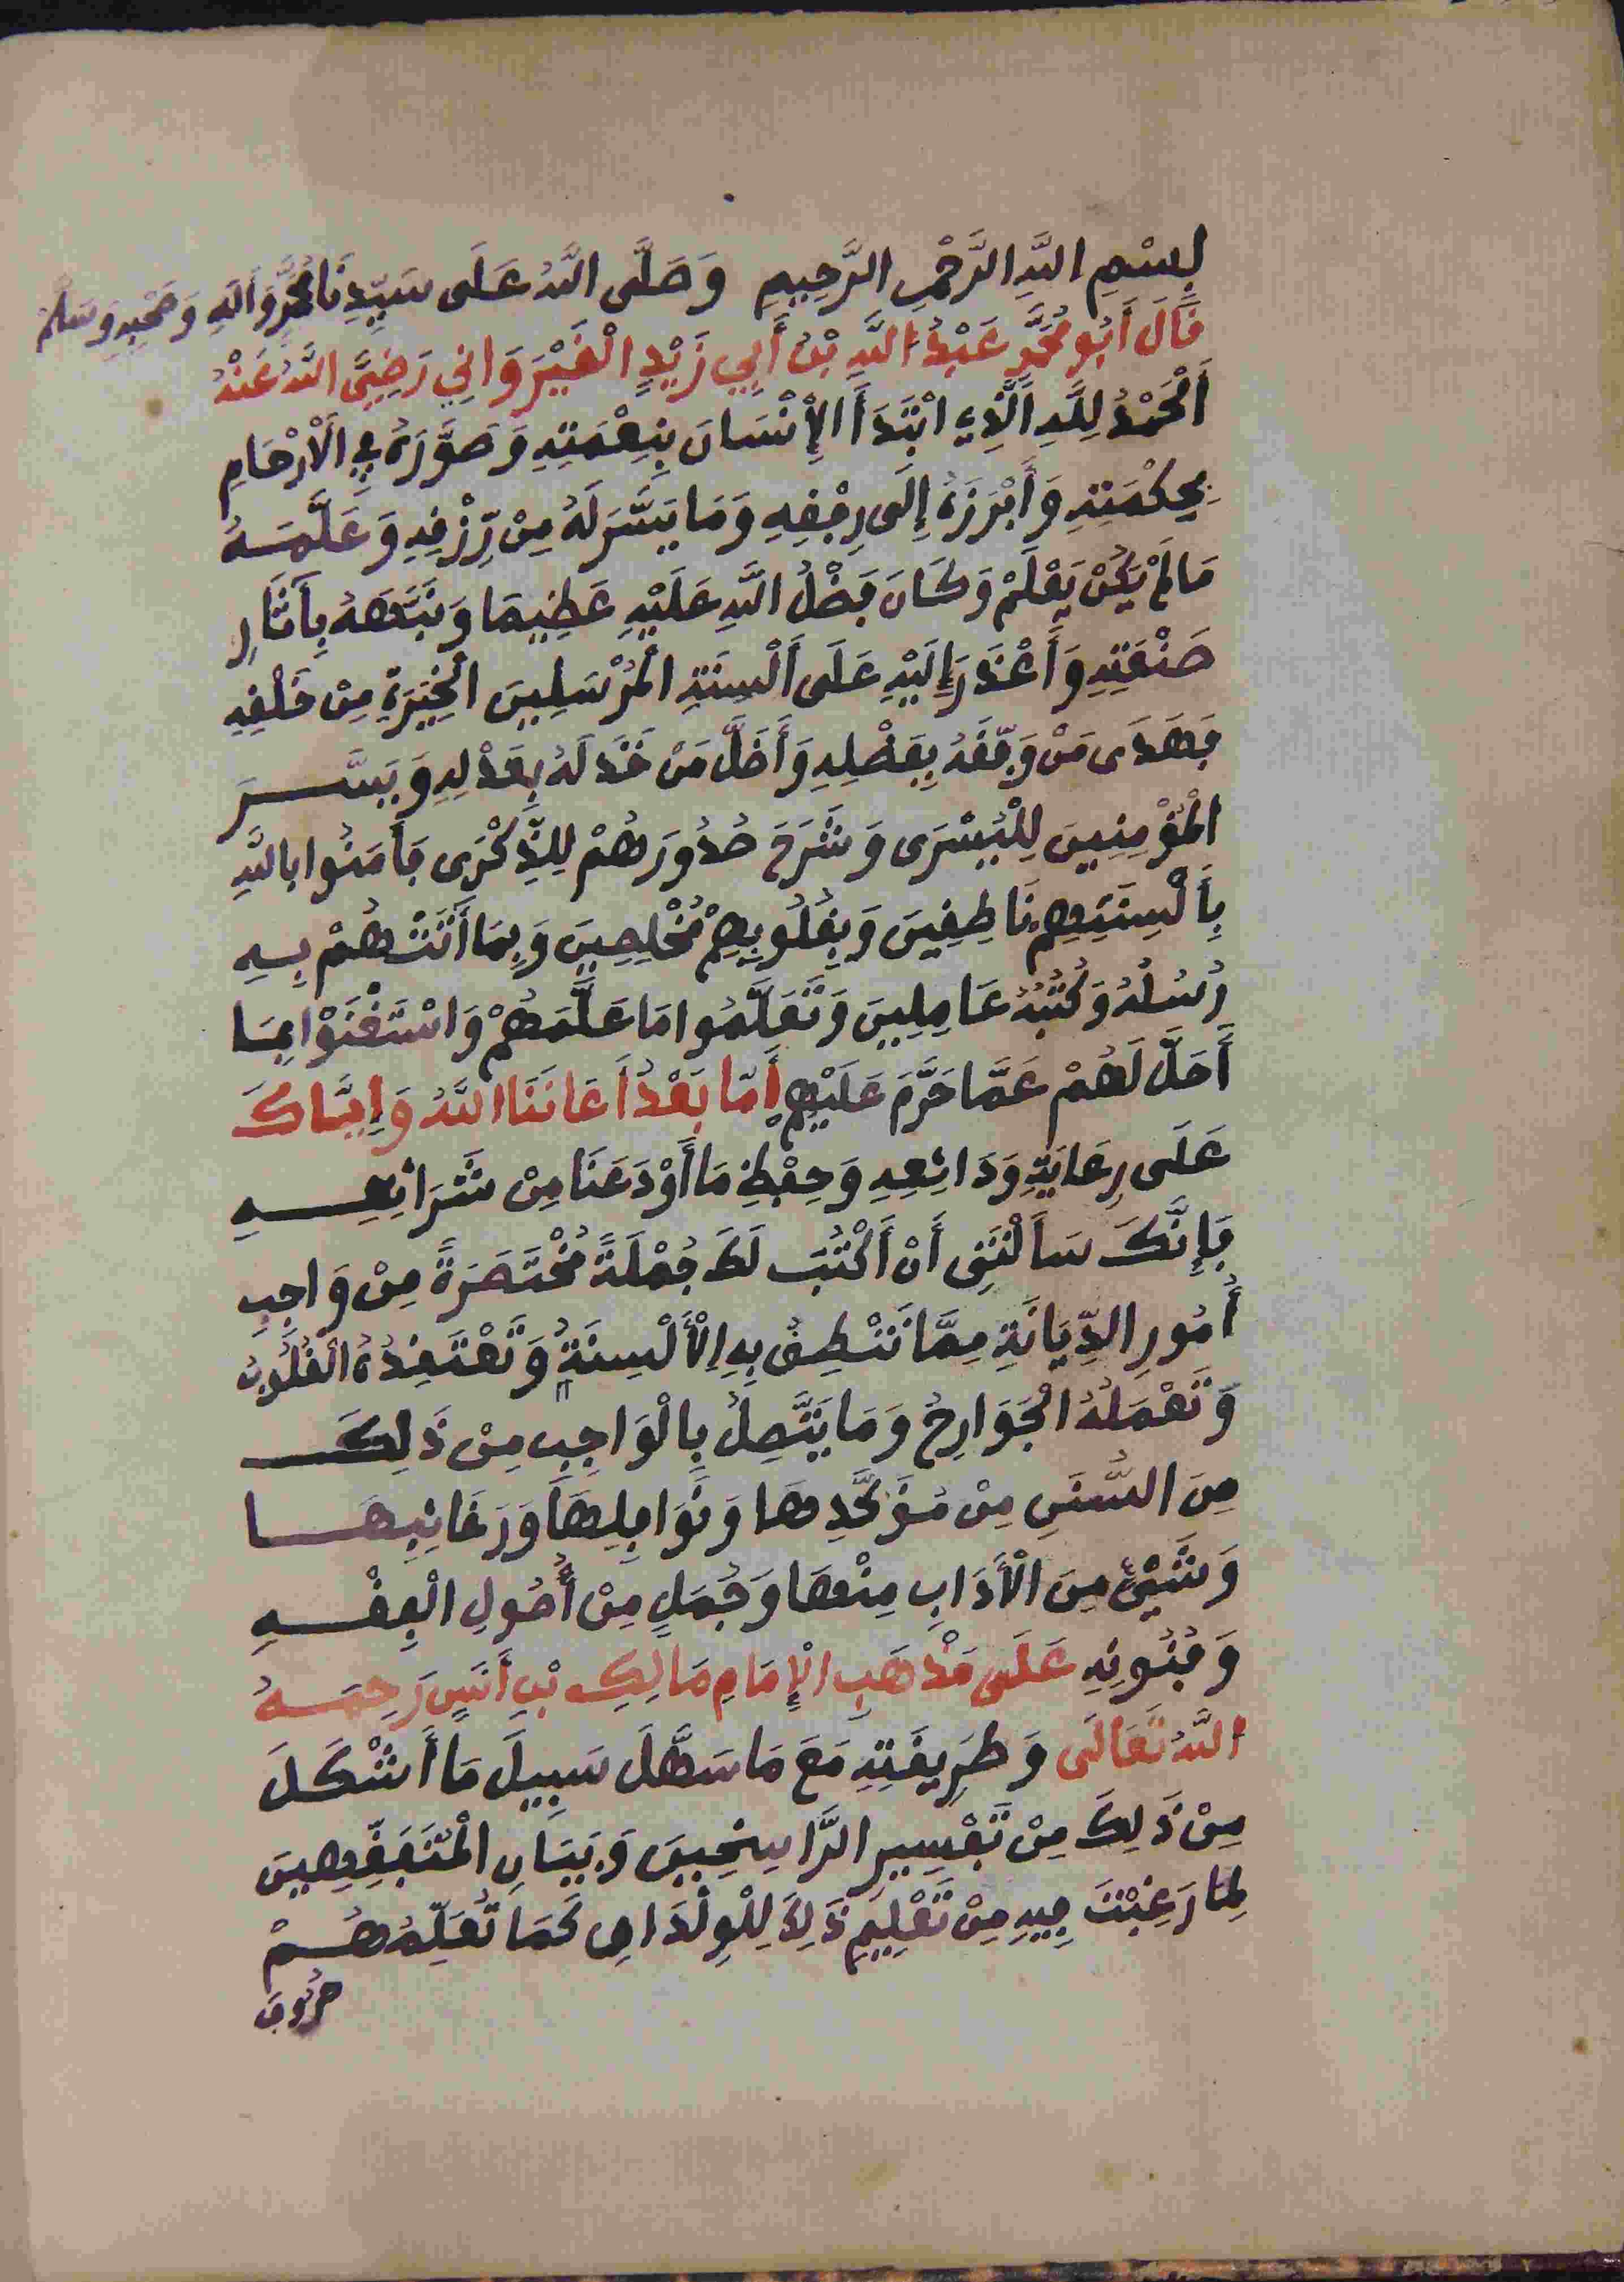 بِسْمِ اللَّهِ الرَّحْمَنِ الرَّحِيمِ وَصَلَّى اللَّهُ عَلَى سَيِّدِنَا مُحَمَّدٍ وَآلِهِ وَصَحْبِهِ وَسَلَّمَ
قَالَ أَبُو مُحَمَّدٍ عَبْدُ اللَّهِ بْنُ أَبِي زَيْدٍ الْقَيْرَوَانِي رَضِيَ اللَّهُ عَنْهُ
اَلْحَمْدُ لِلَّهِ الَّذِي ابْتَدَأَ الْإِنْسَانَ بِنِعْمَتِهِ وَصَوَّرَهُ فِي الْأَرْحَامِ
بِحِكْمَتِهِ وَأَبْرَزَهُ إِلَى رِفْقِهِ وَمَا يَسَّرَ لَهُ مِنْ رِزْقِهِ وَعَلَّمَهُ
مَا لَمْ يَكُنْ يَعْلَمْ وَكَانَ فَضْلُ اللَّهِ عَلَيْهِ عَظِيمًا وَنَبَّهَهُ بِآثَارِ
صَنْعَتِهِ وَأَعْذَرَ إِلَيْهِ عَلَى أَلْسِنَةِ الْمُرْسَلِينَ الْخِيَرَةِ مِنْ خَلْقِهِ
فَهَدَى مَنْ وَفَّقَهُ بِفَضْلِهِ وَأَضَلَّ مَنْ خَذَلَهُ بِعَدْلِهِ وَيَسَّرَ
الْمُؤْمِنِينَ لِلْيُسْرَى وَشَرَحَ صُدُورَهُمْ لِلذِّكْرَى فَآمَنُوا بِاللَّهِ
بِأَلْسِنَتِهِمْ نَاطِقِينَ وَبِقُلُوبِهِمْ مُخْلِصِينَ وَبِمَا أَتَتْهُمْ بِهِ
رُسُلُهُ وَكُتُبُهُ عَامِلِينَ وَتَعَلَّمُوا مَا عَلَّمَهُمْ وَاسْتَغْنَوْا بِمَا
أَحَلَّ لَهُمْ عَمَّا حَرَّمَ عَلَيْهِمْ أَمَّا بَعْدُ أَعَانَنَا اللَّهُ وَإِيَّاكَ
عَلَى رِعَايَةِ وَدَائِعِهِ وَحِفْظِ مَا أَوْدَعَنَا مِنْ شَرَائِعِهِ
فَإِنَّكَ سَأَلْتَنِي أَنْ أَكْتُبَ لَكَ جُمْلَةً مُخْتَصَرَةً مِنْ وَاجِبِ
أُمُورِ الدِّيَانَةِ مِمَّا تَنْطِقُ بِهِ الْأَلْسِنَةُ وَتَعْتَقِدُهُ الْقُلُوبُ
وَتَعْمَلُهُ الْجَوَارِحُ وَمَا يَتَّصِلُ بِالْوَاجِبِ مِنْ ذَلِكَ
مِنَ السُّنَنِ مِنْ مُؤَكَّدِهَا وَنَوَافِلِهَا وَرَغَائِبِهَا
وَشَيْئٍ مِنَ الْأَدَابِ مِنْهَا وَجُمَلٍ مِنْ أُصُولِ الْفِقْهِ
وَفُنُونِهِ عَلَى مَذْهَبِ الْإِمَامِ مَالِكِ بْنِ أَنَسٍ رَحِمَهُ
اللَّهُ تَعَالَى وَطَرِيقَتِهِ مَعَ مَا سَهَّلَ سَبِيلَ مَا أَشْكَلَ
مِنْ ذَلِكَ مِنْ تَفْسِيرِ الرَّاسِخِينَ وَبَيَانِ الْمُتَفَقِّهِينَ
لِمَا رَغِبْتَ فِيهِ مِنْ تَعْلِيمِ ذَلِكَ لِلْوِلْدَانِ كَمَا تُعَلِّمُهُمْ
حُرُوفَ